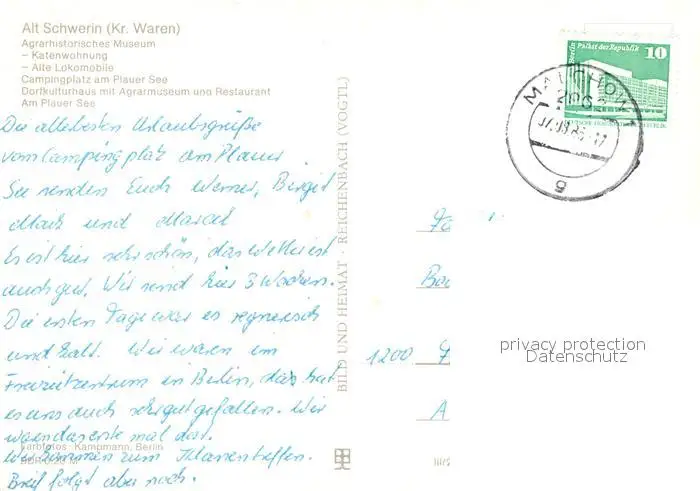 Alt Schwerin (Kr. Waren)
Agrarhistorisches Museum
– Katenwohnung
– Alte Lokomobile
Campingplatz am Plauer See
Dorfkulturhaus mit Agrarmuseum und Restaurant
Am Plauer See
Die allerbesten Urlaubsgrüße
vom Campingplatz am Plauer
See senden Euch Werner, Birgit
Maik und Marcel
Es ist hier sehr schön, das Wetter ist
auch gut. Wir sind hier 3 Wochen.
Die ersten Tage war es regnerisch
und kalt. Wir waren im
Freizeitzentrum in Berlin, das hat
es uns auch sehr gut gefallen. Wir
waren das erste mal dort.
Wir kommen zum Klassentreffen.
Brief folgt aber noch.
Farbfotos: Kampmann, Berlin
BILD UND HEIMAT · REICHENBACH (VOGTL)
Berlin Palast der Republik
10
MALCHOW
g
1200
privacy protection
Datenschutz